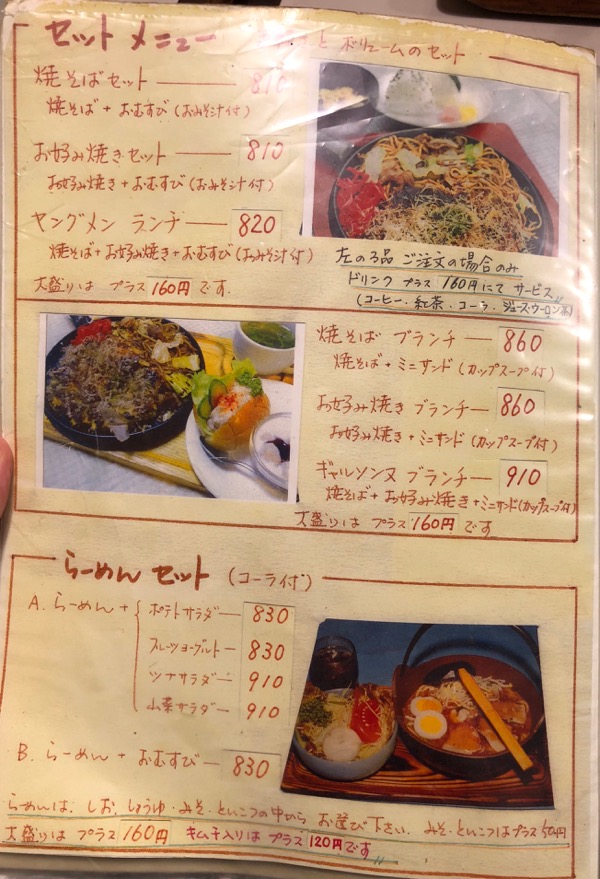 セットメニュー と ボリュームのセット
焼そばセット 810
焼そば + おむすび (おみそ汁付)
お好み焼きセット 810
お好み焼き + おむすび (おみそ汁付)
ヤングメン ランチ 820
焼そば + お好み焼き + おむすび (おみそ汁付)
大盛りは プラス 160円 です.
左の3品 ご注文の場合のみ
ドリンク プラス 160円にて サービス
(コーヒー・紅茶・コーラ・ジュース・ウーロン茶)
焼そば ブランチ 860
焼そば + ミニサンド (カップスープ付)
お好み焼き ブランチ 860
お好み焼き + ミニサンド (カップスープ付)
ギャルソンヌ ブランチ 910
焼そば + お好み焼き + ミニサンド (カップスープ付)
大盛りは プラス 160円 です
らーめん セット (コーラ付)
A. らーめん + { ポテトサラダ 830
フルーツヨーグルト 830
ツナサラダー 910
山菜サラダー 910
B. らーめん + おむすび 830
らーめんは、しお、しょうゆ・みそ・とんこつの中から お選び下さい. みそ・とんこつはプラス50円
大盛りは プラス 160円 キムチ入りは プラス 120円です